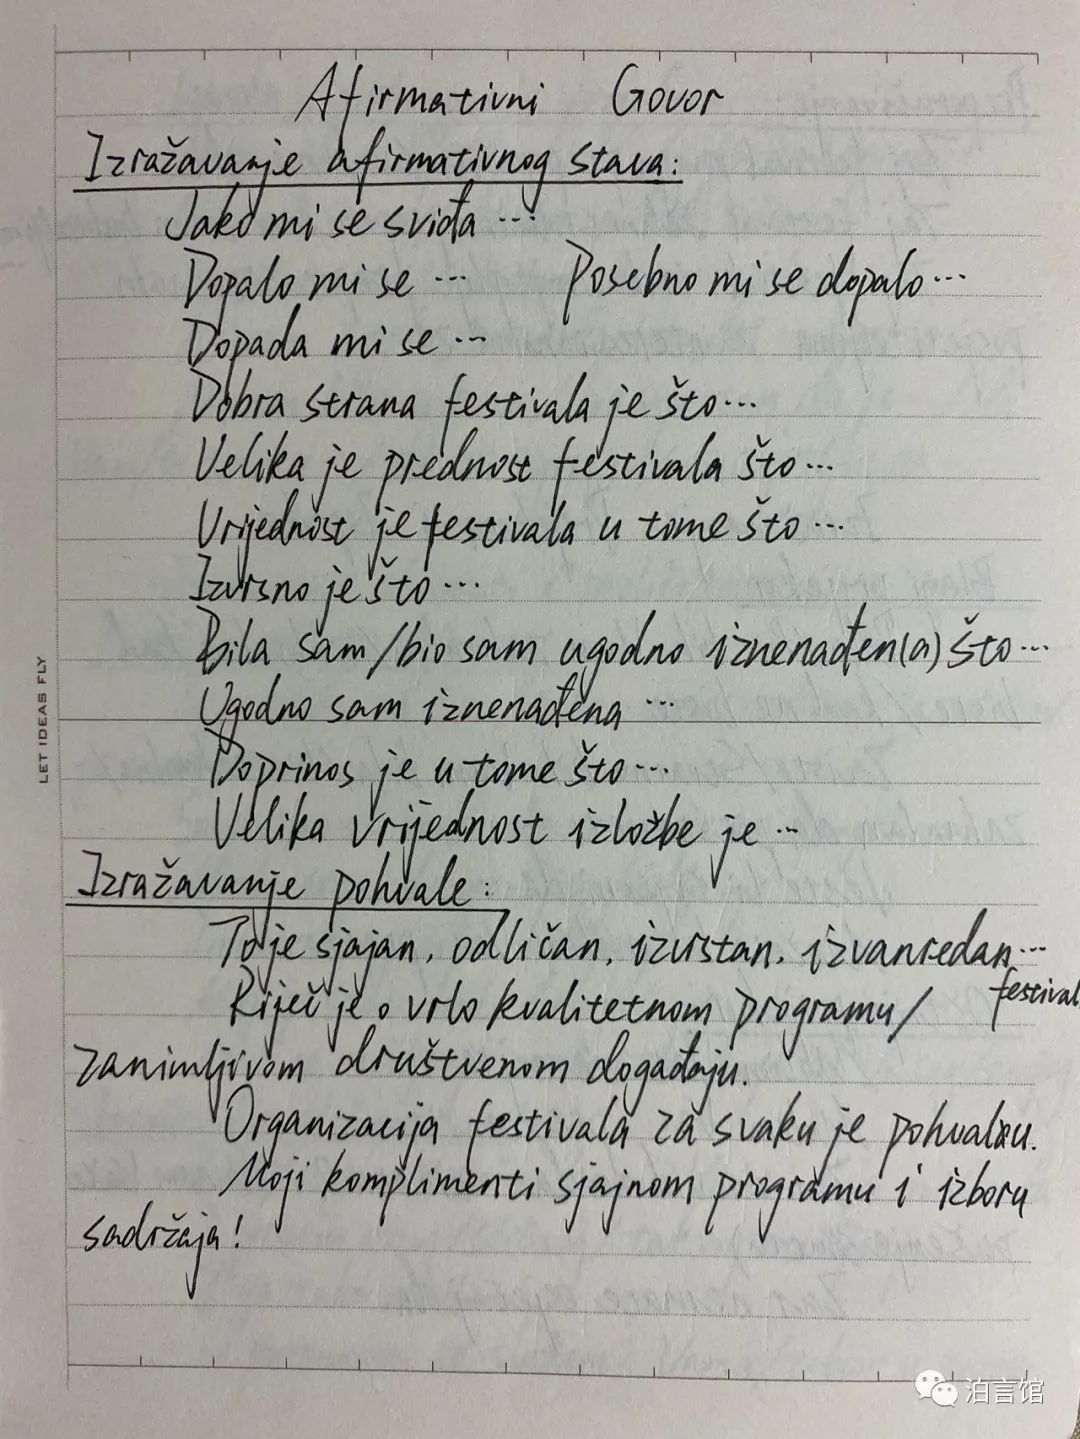 Afirmativni Govor
Izražavanje afirmativnog stava:
Jako mi se sviđa ...
Dopalo mi se ... Posebno mi se dopalo ...
Dopada mi se ...
Dobra strana festivala je što ...
Velika je prednost festivala što ...
Vrijednost je festivala u tome što ...
Izvrsno je što ...
Bila sam/bio sam ugodno iznenađen(a) što ...
Ugodno sam iznenađena ...
Doprinos je u tome što ...
Velika vrijednost izložbe je ...
Izražavanje pohvale:
To je sjajan, odličan, izvrstan, izvanredan ...
festival
Riječ je o vrlo kvalitetnom programu/
zanimljivom društvenom događaju.
Organizacija festivala za svaku je pohvalu.
Moji komplimenti sjajnom programu i izboru
sadržaja!
LET IDEAS FLY
泊言馆